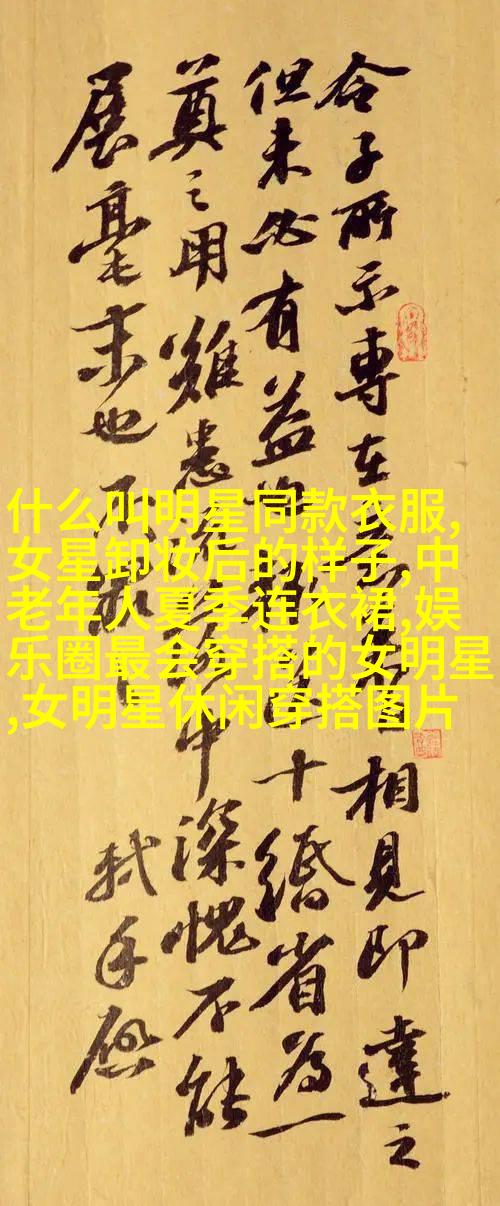 令子所示專在相見即達之
但未必有益十緡省為一
奠之用雖中深愧不能
展毫末也不
軾手啟
什么叫明星同款衣服,
女星卸妆后的样子,中
老年人夏季连衣裙,娱
乐圈最会穿搭的女明星
,女明星休闲穿搭图片